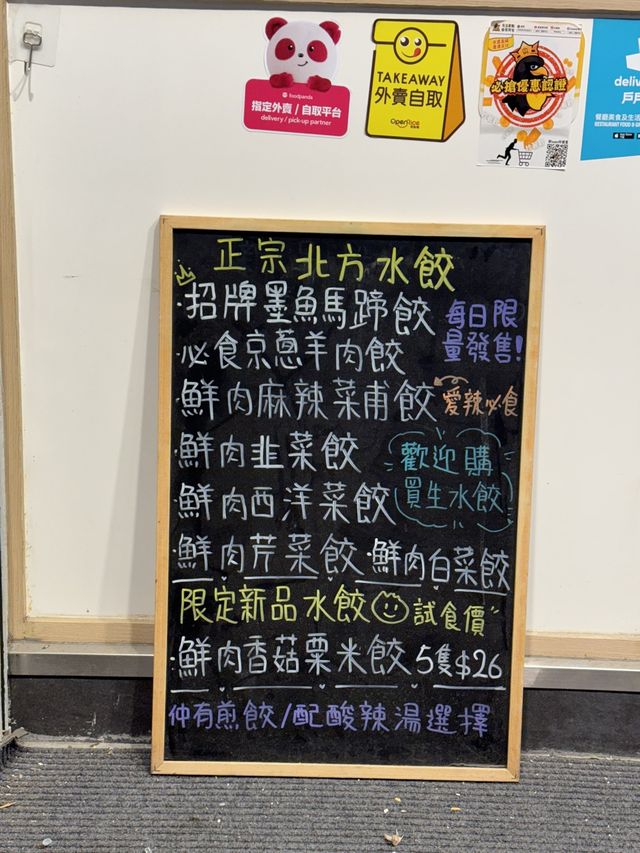 foodpanda
指定外賣 / 自取平台
delivery / pick-up partner
TAKEAWAY
外賣自取
OpenRice
必搶優惠認證
deliv
戶戶
餐廳美食及生活
正宗北方水餃
·招牌墨魚馬蹄餃
每日限
量發售!
·必食京蔥羊肉餃
·鮮肉麻辣菜甫餃
愛辣必食
·鮮肉韭菜餃
歡迎購
買生水餃
·鮮肉西洋菜餃
·鮮肉芹菜餃 ·鮮肉白菜餃
限定新品水餃 試食價"
·鮮肉香菇粟米餃 5隻$26
仲有煎餃/配酸辣湯選擇